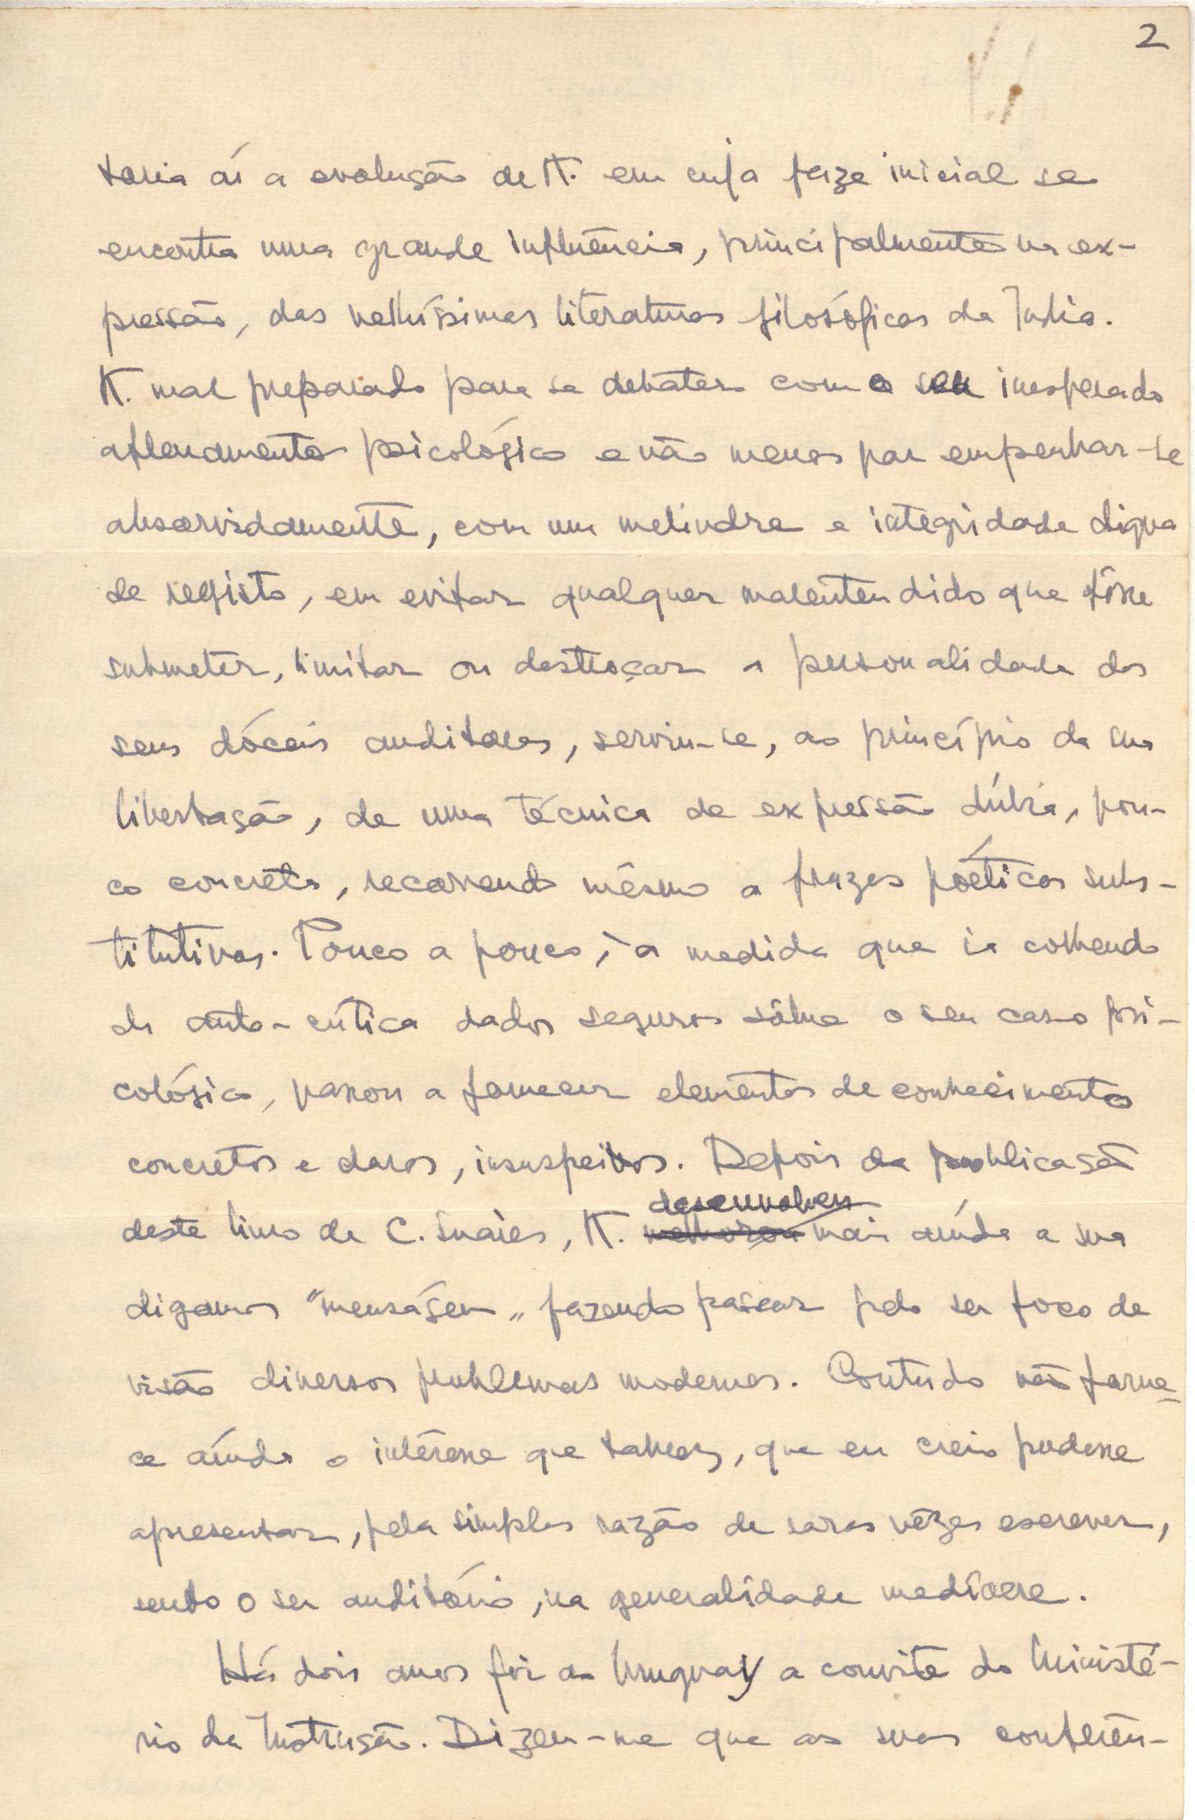 2
taria aí a evolução de K. em cuja faze inicial se
encontra uma grande influência, principalmente na ex-
pressão, das velhíssimas literaturas filosóficas da India.
K. mal preparado para se debater com o seu inesperado
afloramento psicológico e não menos por empenhar-se
absorvidamente, com um melindre e integridade digna
de registo, em evitar qualquer malentendido que fôsse
submeter, limitar ou destroçar a personalidade dos
seus dóceis auditores, serviu-se, ao princípio da sua
libertação, de uma técnica de expressão dúbia, pou-
co concreta, recorrendo mêsmo a frazes poéticas subs-
titutivas. Pouco a pouco, à medida que ia colhendo
da auto-crítica dados seguros sôbre o seu caso psi-
cológico, passou a fornecer elementos de conhecimento
concretos e claros, insuspeitos. Depois da publicação
desenvolveu
deste livro de C. Suarès, K. melhorou mais aínda a sua
digamos "menságem" fazendo passar pelo seu foco de
visão diversos problemas modernos. Contudo não forne-
ce aínda o intêresse que talvez, que eu creio pudesse
apresentar, pela simples razão de raras vêzes escrever,
sendo o seu auditório, na generalidade medíocre.
Há dois anos foi ao Uruguay a convite do Ministé-
rio da Instrução. Dizem-me que as suas conferên-